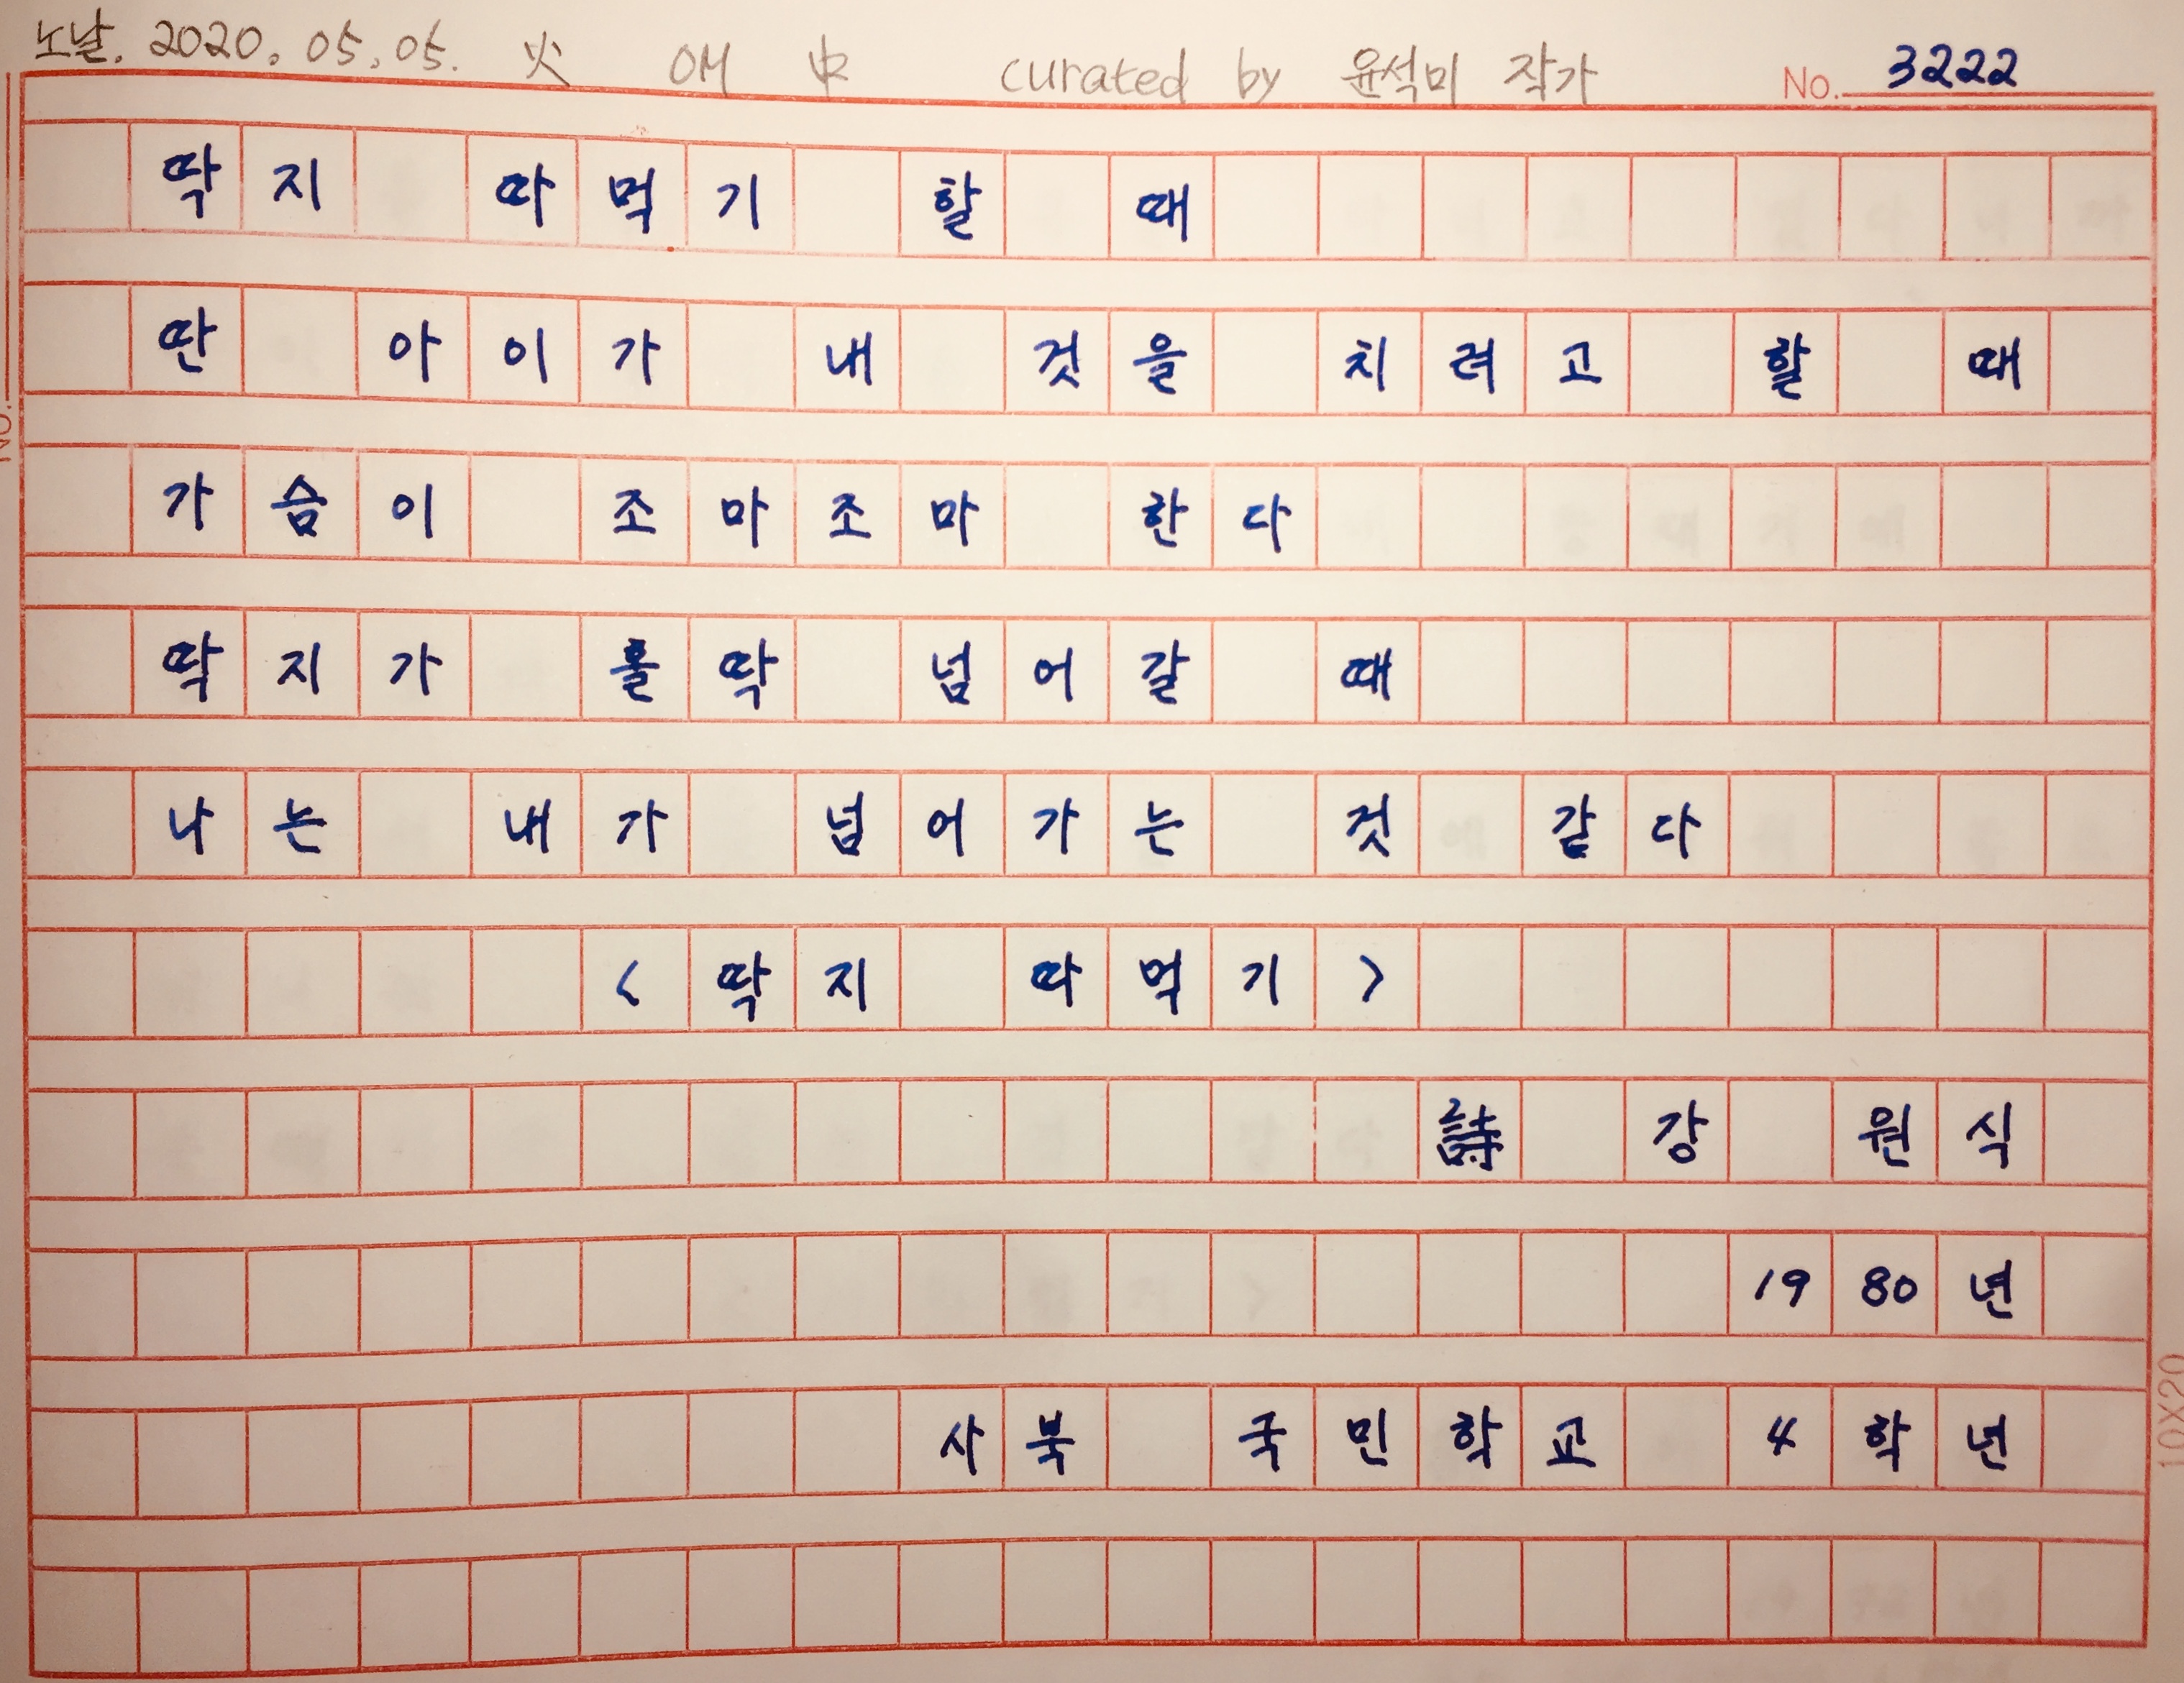 노날. 2020. 05. 05. 火 OM 中 curated by 윤석미 작가 No. 3222
딱지 따먹기 할 때
딴 아이가 내 것을 치려고 할 때
가슴이 조마조마 한다
딱지가 홀딱 넘어갈 때
나는 내가 넘어가는 것 같다
<딱지 따먹기>
詩 강 원식
1980년
사북 국민학교 4학년
No.
10X20